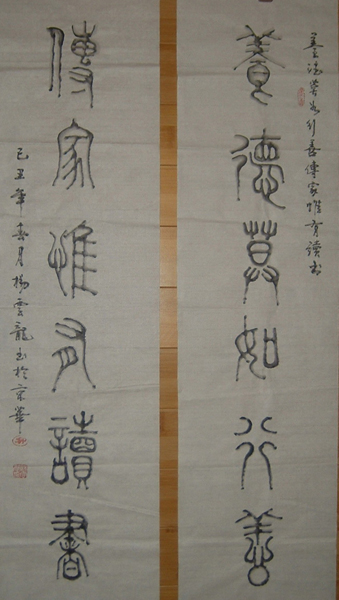 養德莫如行善傳家惟有讀書
養德莫如行善
傳家惟有讀書
己丑年春月楊雲龍書於京華